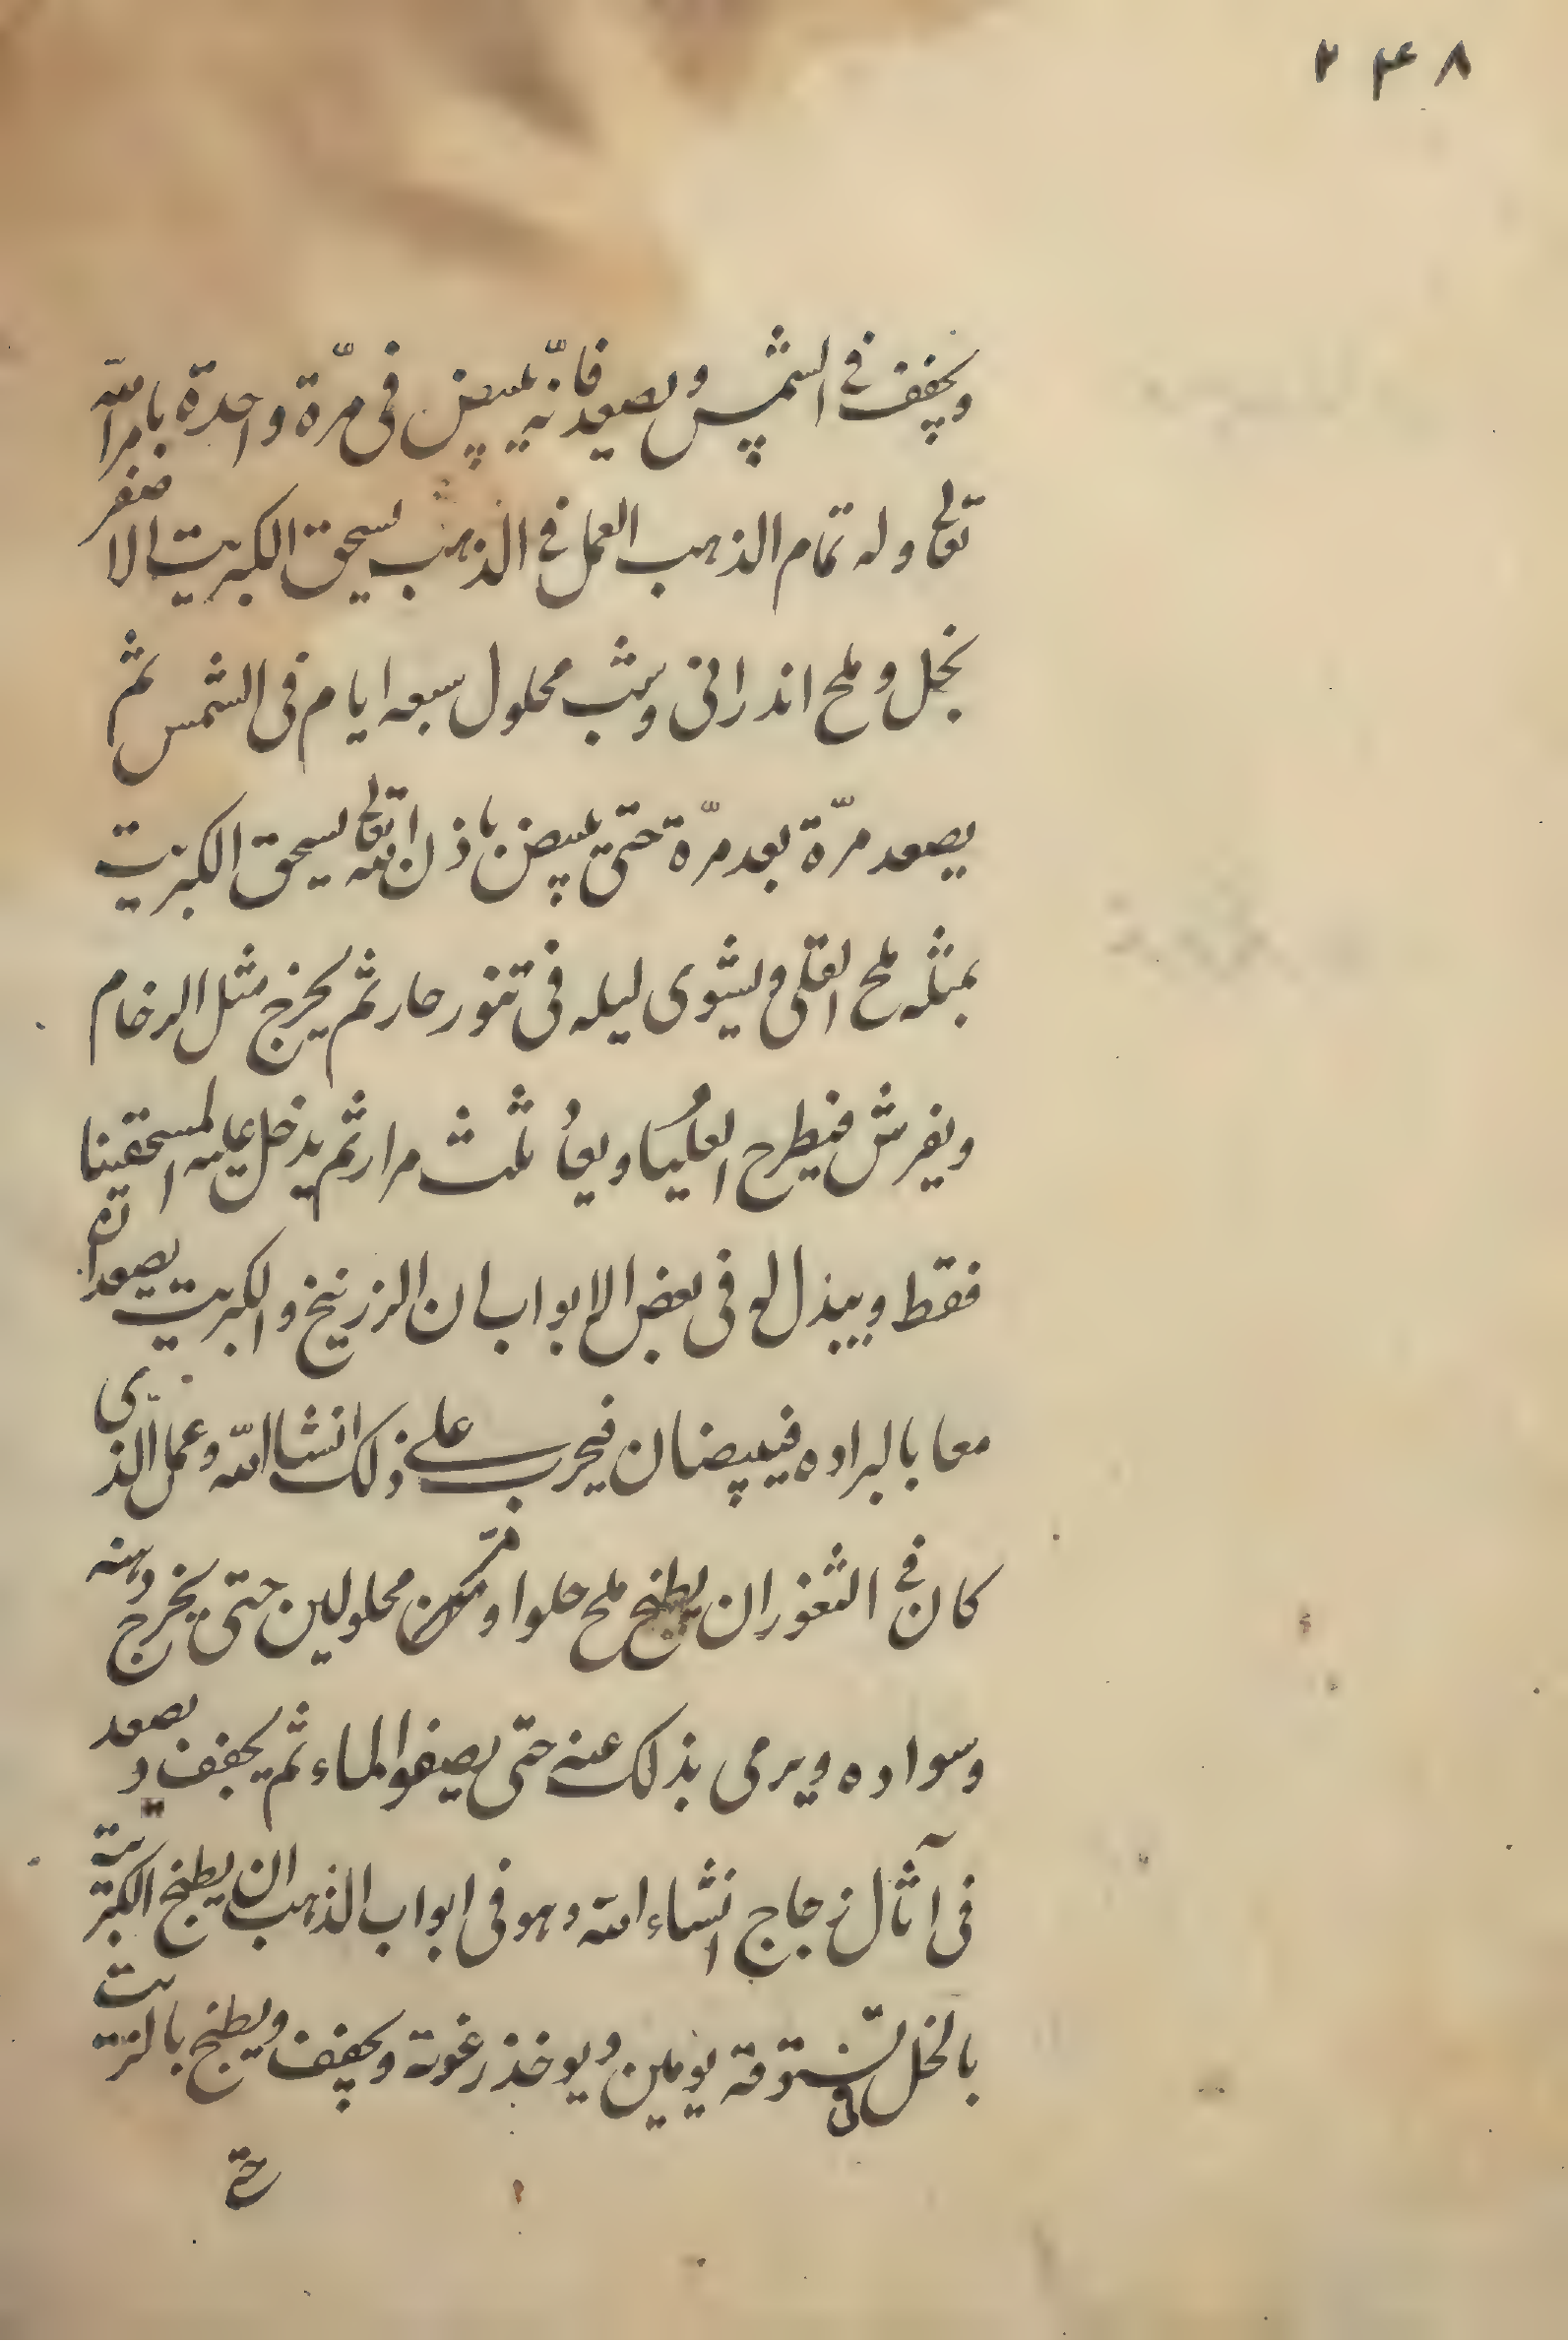 ۲۴۸
ويجفف في الشمس ويصعد فانّه يبيض في مرّة واحدة بامر الله
تعالى وله تمام الذهب العمل في الذهب يسحق الكبريت الاصفر
بخل وملح اندرانى وشب محلول سبعه ايام فى الشمس ثم
يصعد مرّة بعد مرّة حتى يبيض باذن الله تعالى يسحق الكبريت
بمثله ملح القلى ويشوى ليله فى تنور حار ثم يخرج مثل الرخام
ويفرش فيطرح العليا ويعاد ثلث مرار ثم يدخل عليه
فقط وفى بعض الابواب ان الزرنيخ والكبريت يصعدان
معا بالبراده فيبيضان فيجرب على ذلك انشا الله وعمل الذى
كان في الثغر ان يطبخ ملح حلوا ومر محلولين حتى يخرج دهنه
وسواده ويرمى بذلك عنه حتى يصيفوا الماء ثم يجفف ويصعد
فى آثال زجاج انشاء الله وهو فى ابواب الذهب ان يطبخ الكبريت
بالخل فى بستوقة يومين ويوخذ رغوته ويجفف ويطبخ بالزيت
حتى